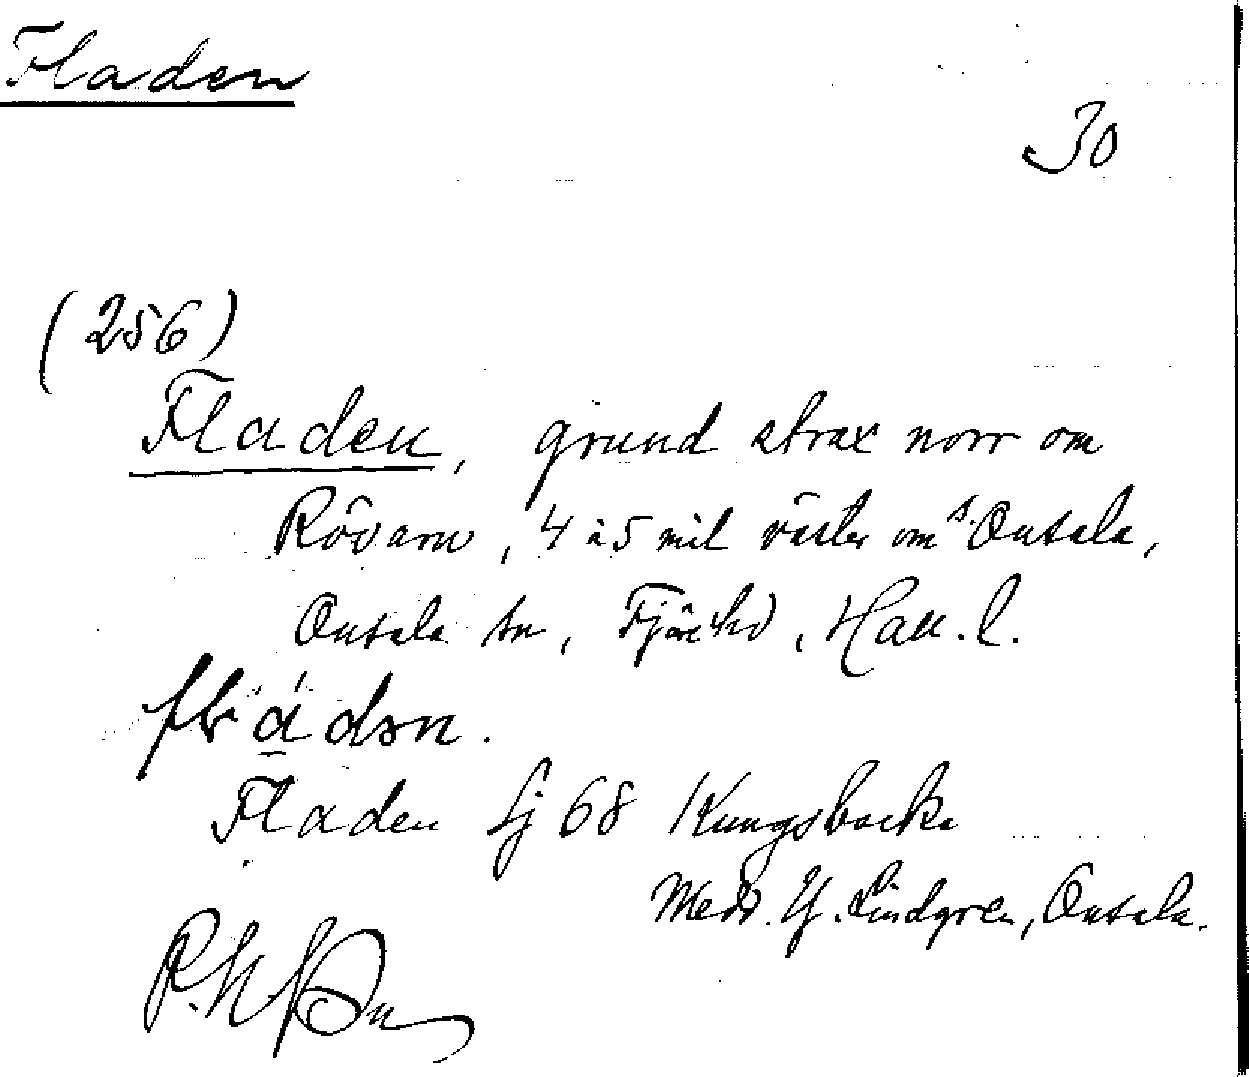 Fladen
30
(256)
Fladen, grund strax norr om
Rövarn, 4 à 5 mil väster om s. Onsala,
Onsala sn, Fjäre hd, Hall. l.
Fladen Sj 68 Kungsbacka
Medd. G. Lindgren, Onsala.